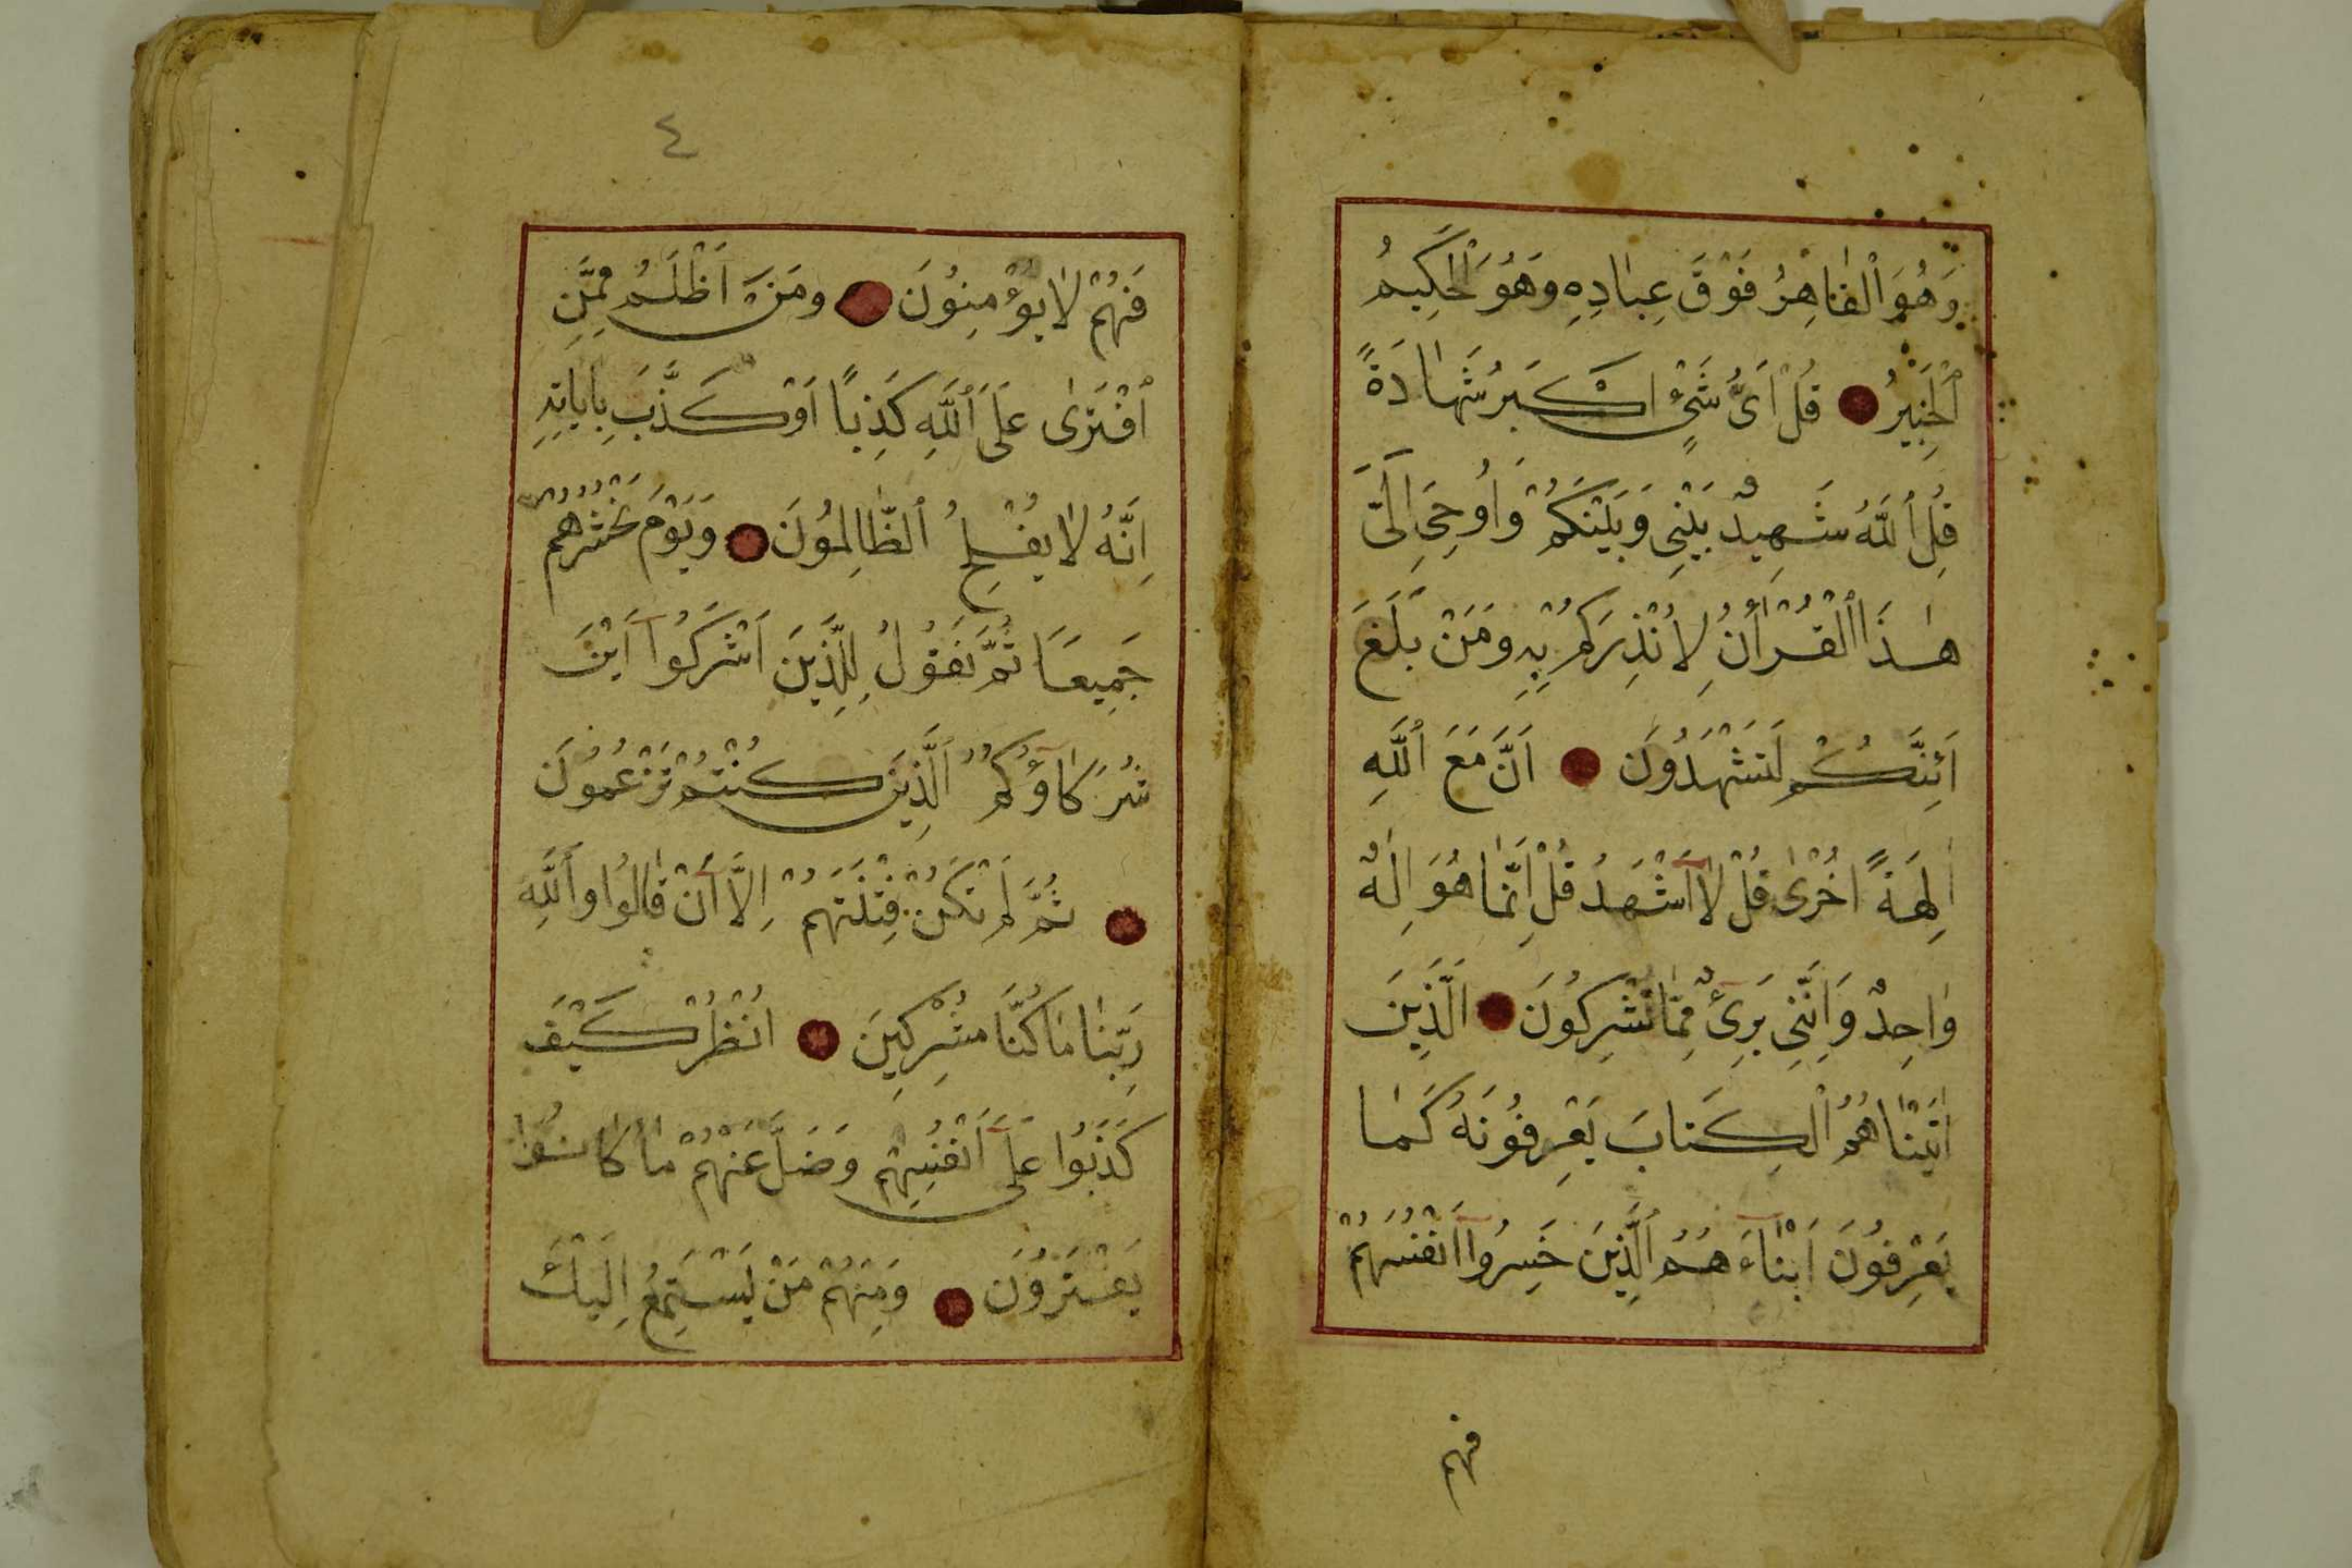 وَهُوَ ٱلْقٰاهِرُ فَوْقَ عِبٰادِهِ وَهُوَ ٱلْحَكِيمُ
ٱلْخَبِيْرُ قُلْ اَىُّ شَىْءٍ اَكْبَرُ شَهٰادَةً
قُلِ ٱللَّهُ شَهِيدٌ بَيْنِى وَبَيْنَكُمْ وَاُوحِىَ اِلَىَّ
هٰذَا ٱلْقُرْاٰنُ لِاُنْذِرَكُمْ بِهِ وَمَنْ بَلَغَ
اَئِنَّكُمْ لَتَشْهَدُونَ اَنَّ مَعَ ٱللَّهِ
اٰلِهَةً اُخْرٰى قُلْ لاٰ اَشْهَدُ قُلْ اِنَّمٰا هُوَ اِلٰهٌ
وٰاحِدٌ وَاِنَّنِى بَرِىءٌ مِمّٰا تُشْرِكُونَ اَلَّذِينَ
اٰتَيْنٰاهُمُ ٱلْكِتَابَ يَعْرِفُونَهُ كَمٰا
يَعْرِفُونَ اَبْنٰاءَ هُمُ ٱلَّذِينَ خَسِرُوا اَنْفُسَهُمْ
فهم
٤
فَهُمْ لاٰ يُؤْمِنُونَ وَمَنْ اَظْلَمُ مِمَّنِ
ٱفْتَرٰى عَلَى ٱللَّهِ كَذِبًا اَوْ كَذَّبَ بِاٰيَاتِهِ
اِنَّهُ لاٰ يُفْلِحُ ٱلظّٰالِمُونَ وَيَوْمَ نَحْشُرُهُمْ
جَمِيعًا ثُمَّ نَقُولُ لِلَّذِينَ اَشْرَكُوا اَيْنَ
شُرَكٰاؤُكُمُ ٱلَّذِينَ كُنْتُمْ تَزْعُمُونَ
ثُمَّ لَمْ تَكُنْ فِتْنَتَهُمْ اِلَّا اَنْ قٰالُوا وَٱللَّهِ
رَبِّنٰا مٰا كُنَّا مُشْرِكِينَ اُنْظُرْ كَيْفَ
كَذَبُوا عَلَى اَنْفُسِهِمْ وَضَلَّ عَنْهُمْ مٰا كٰانُوا
يَفْتَرُونَ وَمِنْهُمْ مَنْ يَسْتَمِعُ اِلَيْكَ